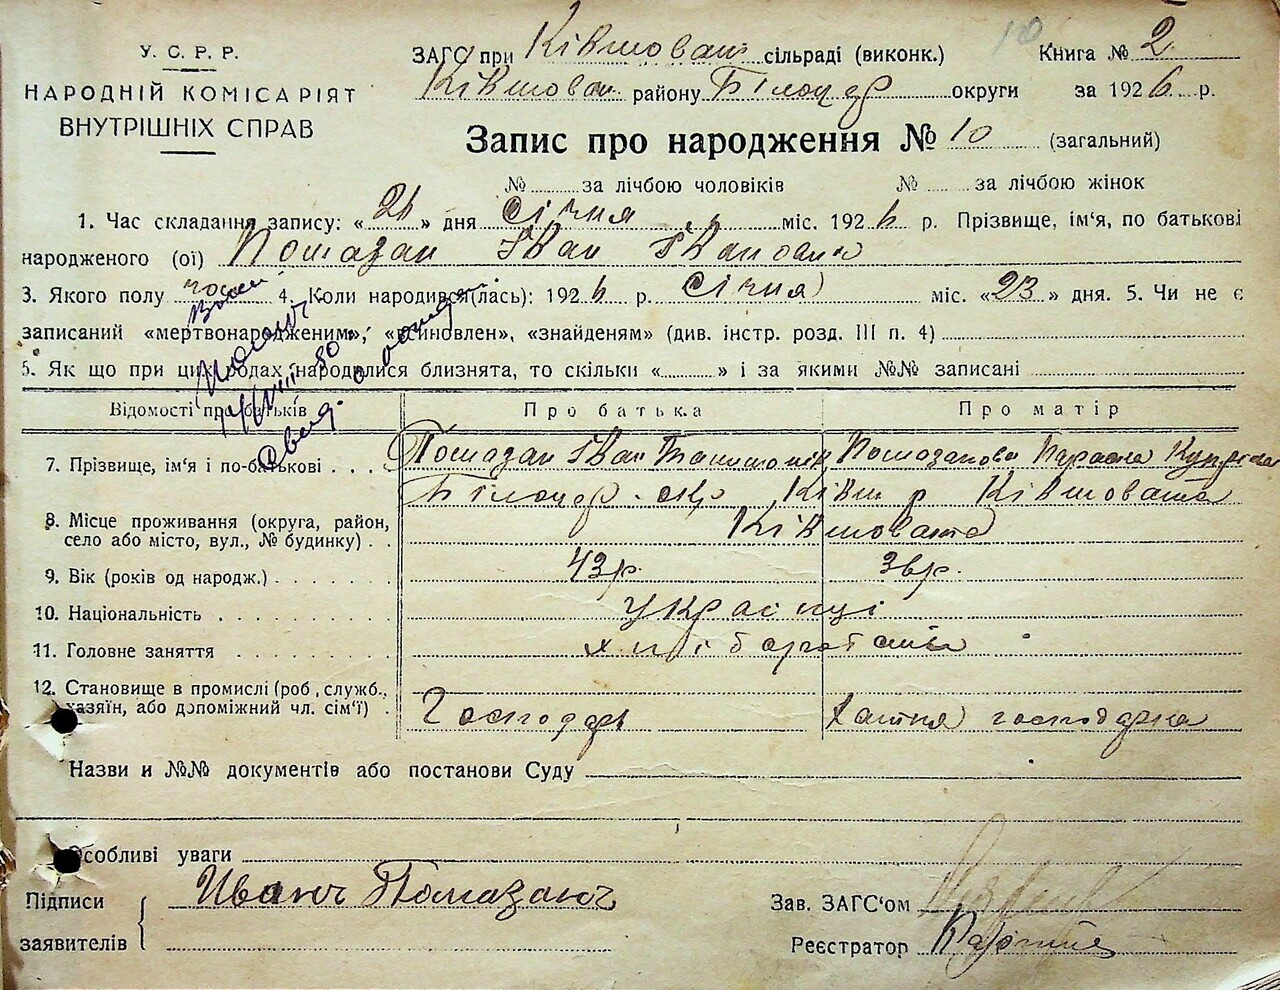 У. С. Р. Р.
НАРОДНІЙ КОМІСАРІЯТ
ВНУТРІШНІХ СПРАВ
10
ЗАГС при Ківшоват. сільраді (виконк.) Книга № 2
Ківшоват. району Білоцер округи за 1926 р.
Запис про народження № 10 (загальний)
№ за лічбою чоловіків № за лічбою жінок
1. Час складання запису: «26» дня Січня міс. 1926 р. Прізвище, ім'я, по батькові
народженого (ої) Помазан Іван Іванович
3. Якого полу чол. 4. Коли народився(лась): 1926 р. Січня міс. «23» дня. 5. Чи не є
записаний «мертвонародженим», «всиновлен», «знайденям» (див. інстр. розд. III п. 4)
6. Як що при ци родах народилися близнята, то скільки « » і за якими №№ записані
Відомості про батьків Про батька Про матір
7. Прізвище, ім'я і по-батькові Помазан Іван Помазанова Параска
Білоцер. окр. Ківш р Ківшовата
8. Місце проживання (округа, район,
село або місто, вул., № будинку) Ківшовата
9. Вік (років од народж.) 43р. 36р.
10. Національність Українці
11. Головне заняття хліборобство
12. Становище в промислі (роб., служб.,
хазяїн, або допоміжний чл. сім'ї) Господарь хатня господарка
Назви и №№ документів або постанови Суду
Особливі уваги
Підписи Иванъ Помазанъ Зав. ЗАГС'ом
заявителів Реєстратор